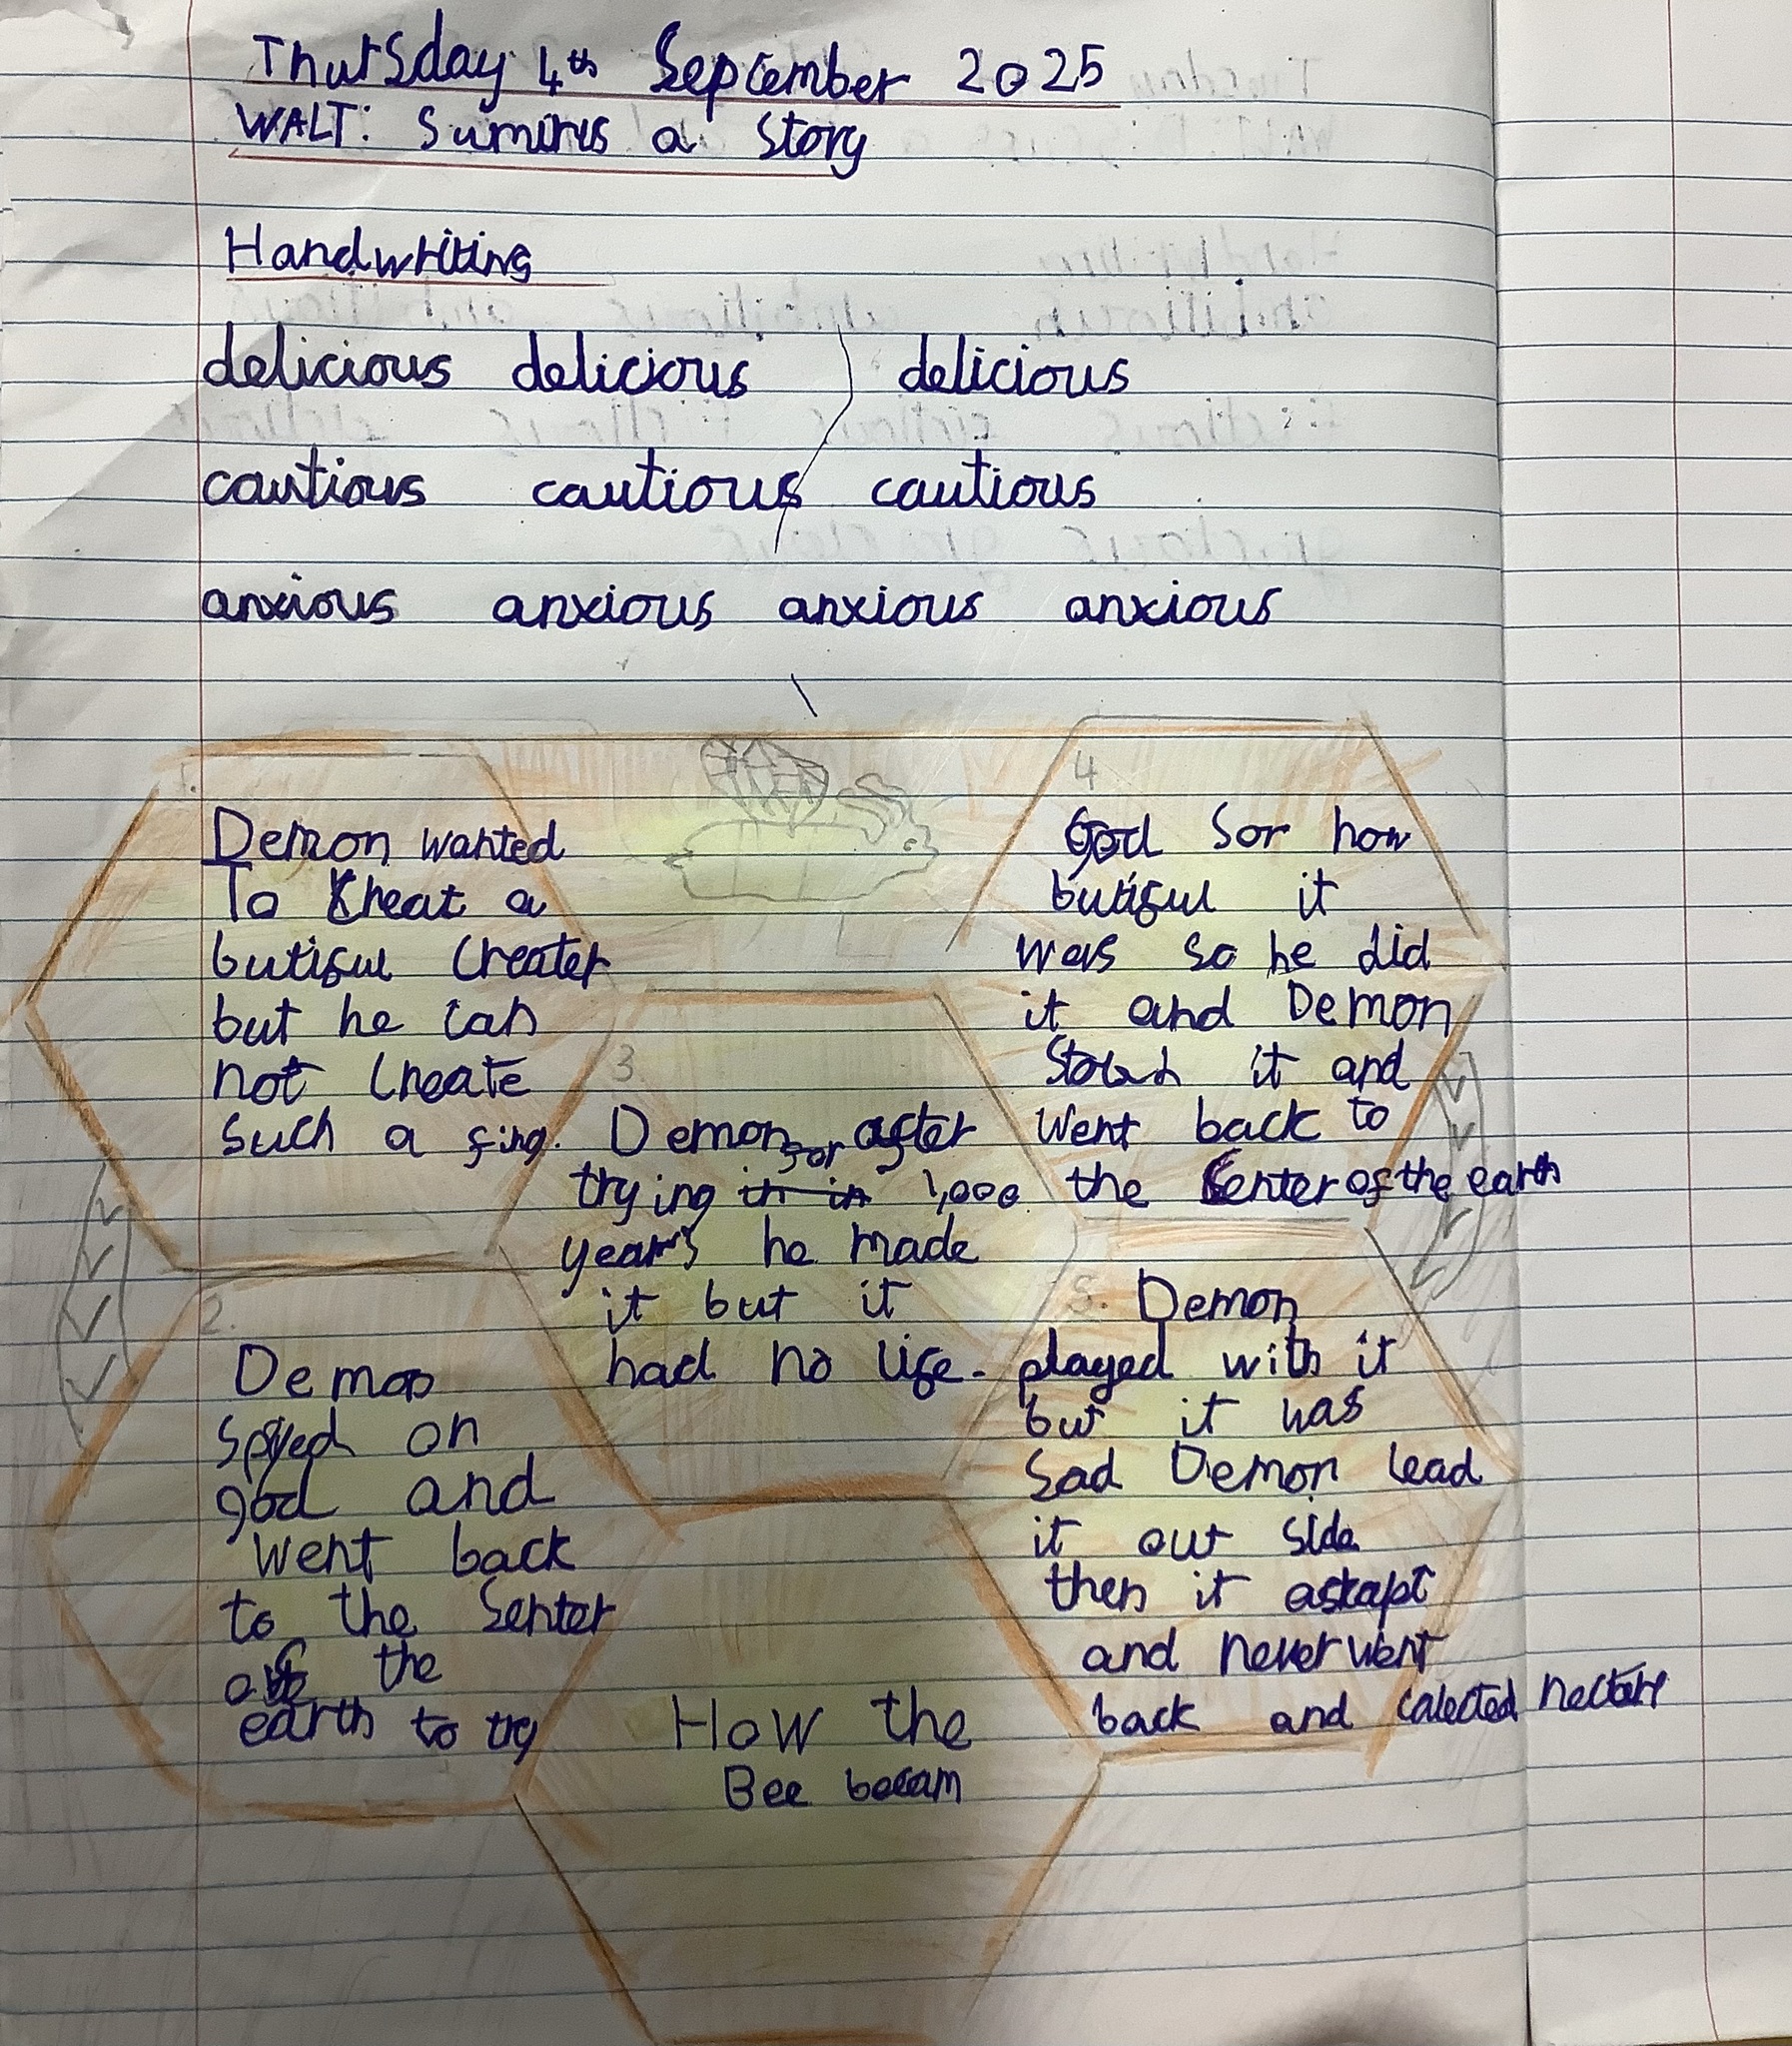 Thursday 4th September 2025
WALT: Sumiris a story
Handwriting
delicious delicious delicious
cautious cautious cautious
anxious anxious anxious anxious
1.
Demon wanted
To Creat a
butiful Creater
but he can
not Create
such a fing.
2.
Demon
spyed on
god and
went back
to the Senter
of the
earth to try
3.
Demon after
trying for 1,000
years he made
it but it
had no life.
4
God sor how
butiful it
was so he did
it and Demon
it and
went back to
the Senter of the earth
5. Demon
played with it
but it was
sad Demon lead
it out side
then it askapt
and never went
back and calected nectare
How the
Bee becam